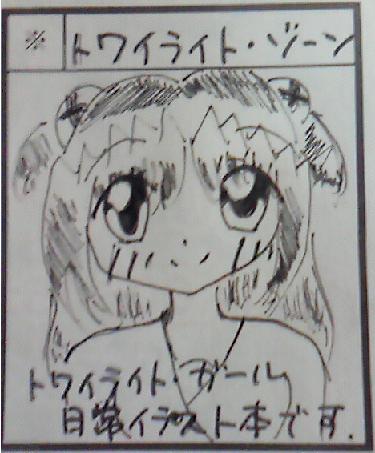 ※ トワイライト・ゾーン
トワイライト・ガール
日常イラスト本です.